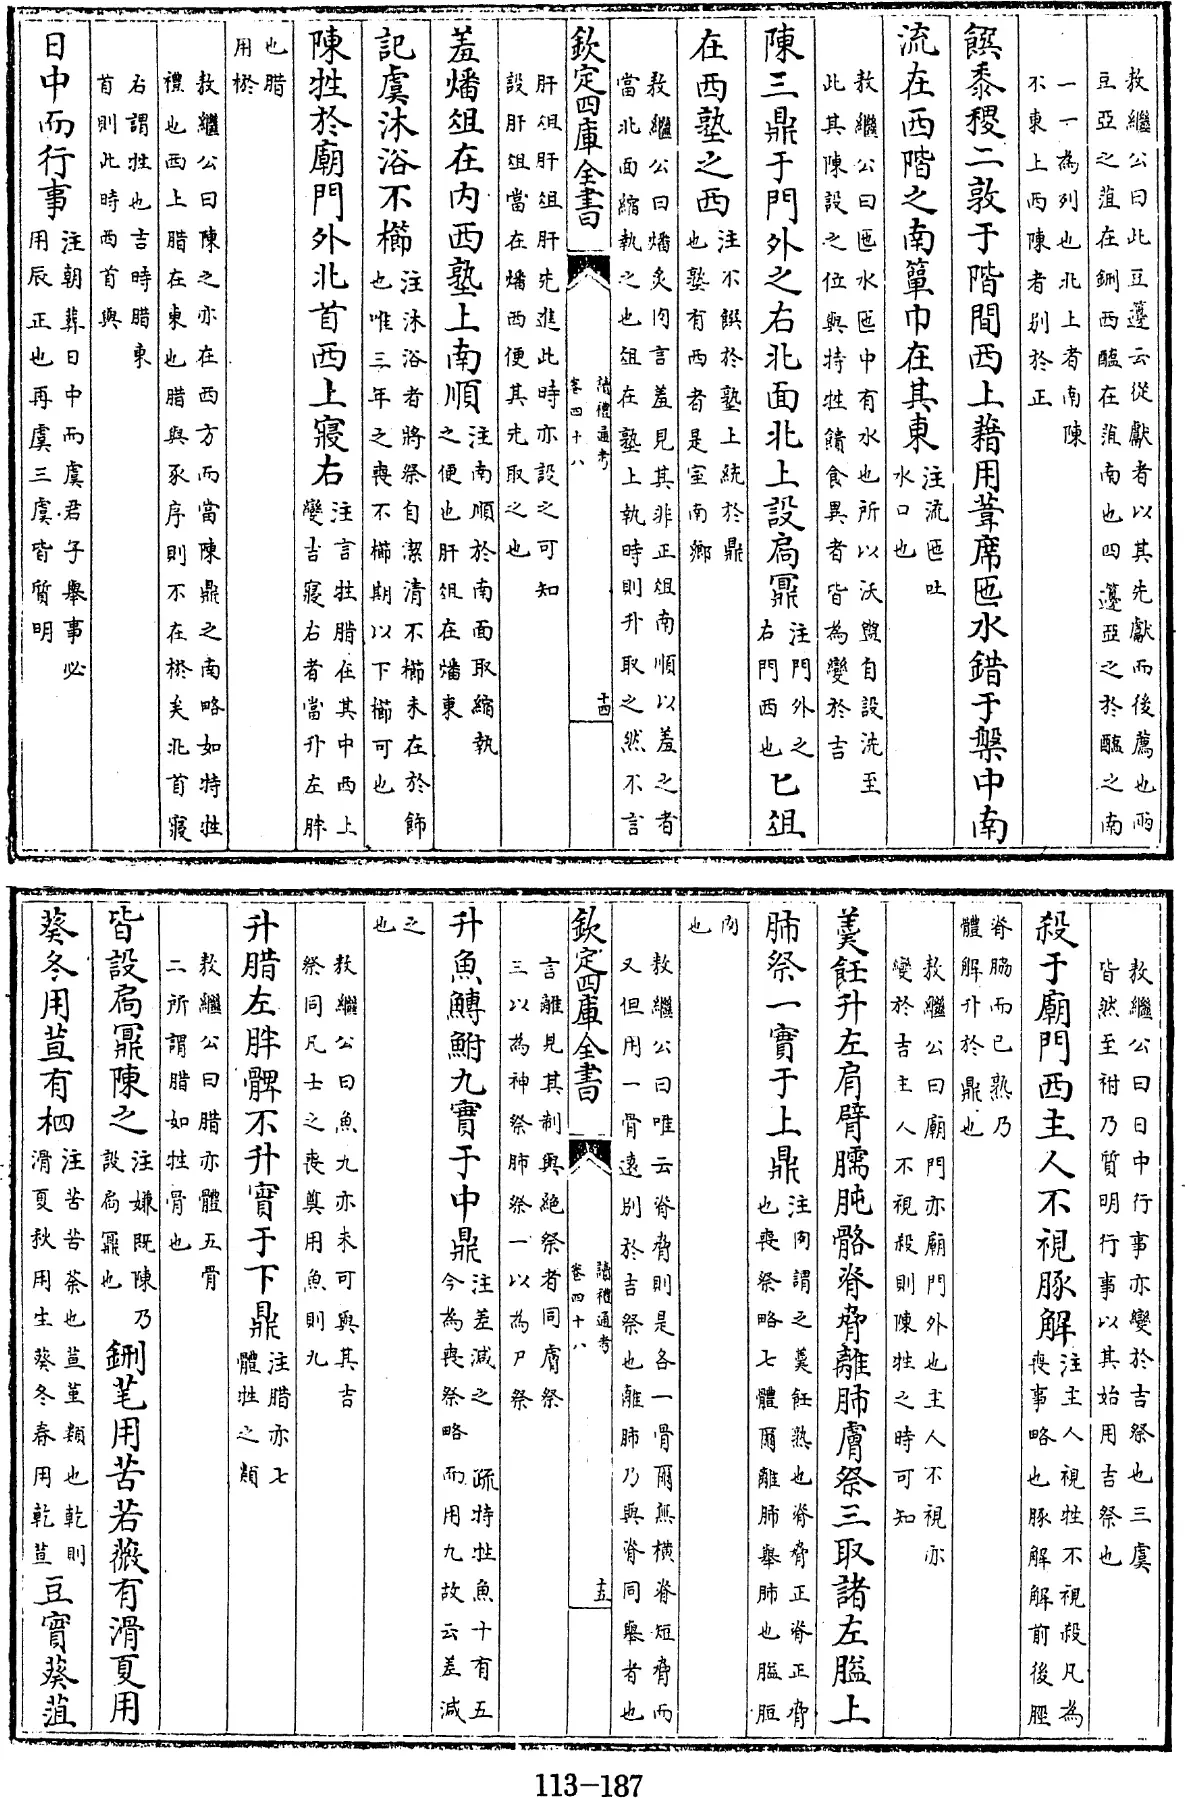 敖繼公曰此豆籩云從獻者以其先獻而後薦也兩
豆亞之菹在鉶西醢在菹南也四籩亞之於醢之南
一一為列也北上者南陳
不東上西陳者别於正
饌黍稷二敦于階間西上藉用葦席匜水錯于槃中南
流在西階之南簞巾在其東注流匜吐
水口也
敖繼公曰匜水匜中有水也所以沃盥自設洗至
此其陳設之位與特牲饋食異者皆為變於吉
陳三鼎于門外之右北面北上設扃鼏注門外之
右門西也匕俎
在西塾之西注不饌於塾上統於鼎
也塾有西者是室南鄉
敖繼公曰燔炙肉言羞見其非正俎南順以羞之者
當北面縮執之也俎在塾上執時則升取之然不言
欽定四庫全書
讀禮通考
卷四十八
十四
肝俎肝俎肝先進此時亦設之可知
設肝俎當在燔西便其先取之也
羞燔俎在内西塾上南順注南順於南面取縮執
之便也肝俎在燔東
記虞沐浴不櫛注沐浴者將祭自潔清不櫛未在於飾
也唯三年之喪不櫛期以下櫛可也
陳牲於廟門外北首西上寢右注言牲腊在其中西上
變吉寢右者當升左胖
也腊
用棜
敖繼公曰陳之亦在西方而當陳鼎之南略如特牲
禮也西上腊在東也腊與豕序則不在棜矣北首寢
右謂牲也吉時腊東
首則此時西首與
日中而行事注朝葬日中而虞君子舉事必
用辰正也再虞三虞皆質明
敖繼公曰日中行事亦變於吉祭也三虞
皆然至祔乃質明行事以其始用吉祭也
殺于廟門西主人不視豚解注主人視牲不視殺凡為
喪事略也豚解解前後脛
脊脇而已熟乃
體解升於鼎也
敖繼公曰廟門亦廟門外也主人不視亦
變於吉主人不視殺則陳牲之時可知
羹飪升左肩臂臑肫骼脊脅離肺膚祭三取諸左膉上
肺祭一實于上鼎注肉謂之羹飪熟也脊脅正脊正脅
也喪祭略七體爾離肺舉肺也膉脰
肉
也
敖繼公曰唯云脊脅則是各一骨爾無横脊短脅而
又但用一骨遠别於吉祭也離肺乃與脊同舉者也
欽定四庫全書
讀禮通考
卷四十八
十五
言離見其制與絶祭者同膚祭
三以為神祭肺祭一以為尸祭
升魚鱄鮒九實于中鼎注差減之
今為喪祭略疏特牲魚十有五
而用九故云差減
之
也
敖繼公曰魚九亦未可與其吉
祭同凡士之喪奠用魚則九
升腊左胖髀不升實于下鼎注腊亦七
體牲之類
敖繼公曰腊亦體五骨
二所謂腊如牲骨也
皆設扃鼏陳之注嫌既陳乃
設扃鼏也鉶芼用苦若薇有滑夏用
葵冬用荁有柶注苦苦荼也荁堇類也乾則
滑夏秋用生葵冬春用乾荁豆實葵菹
113-187